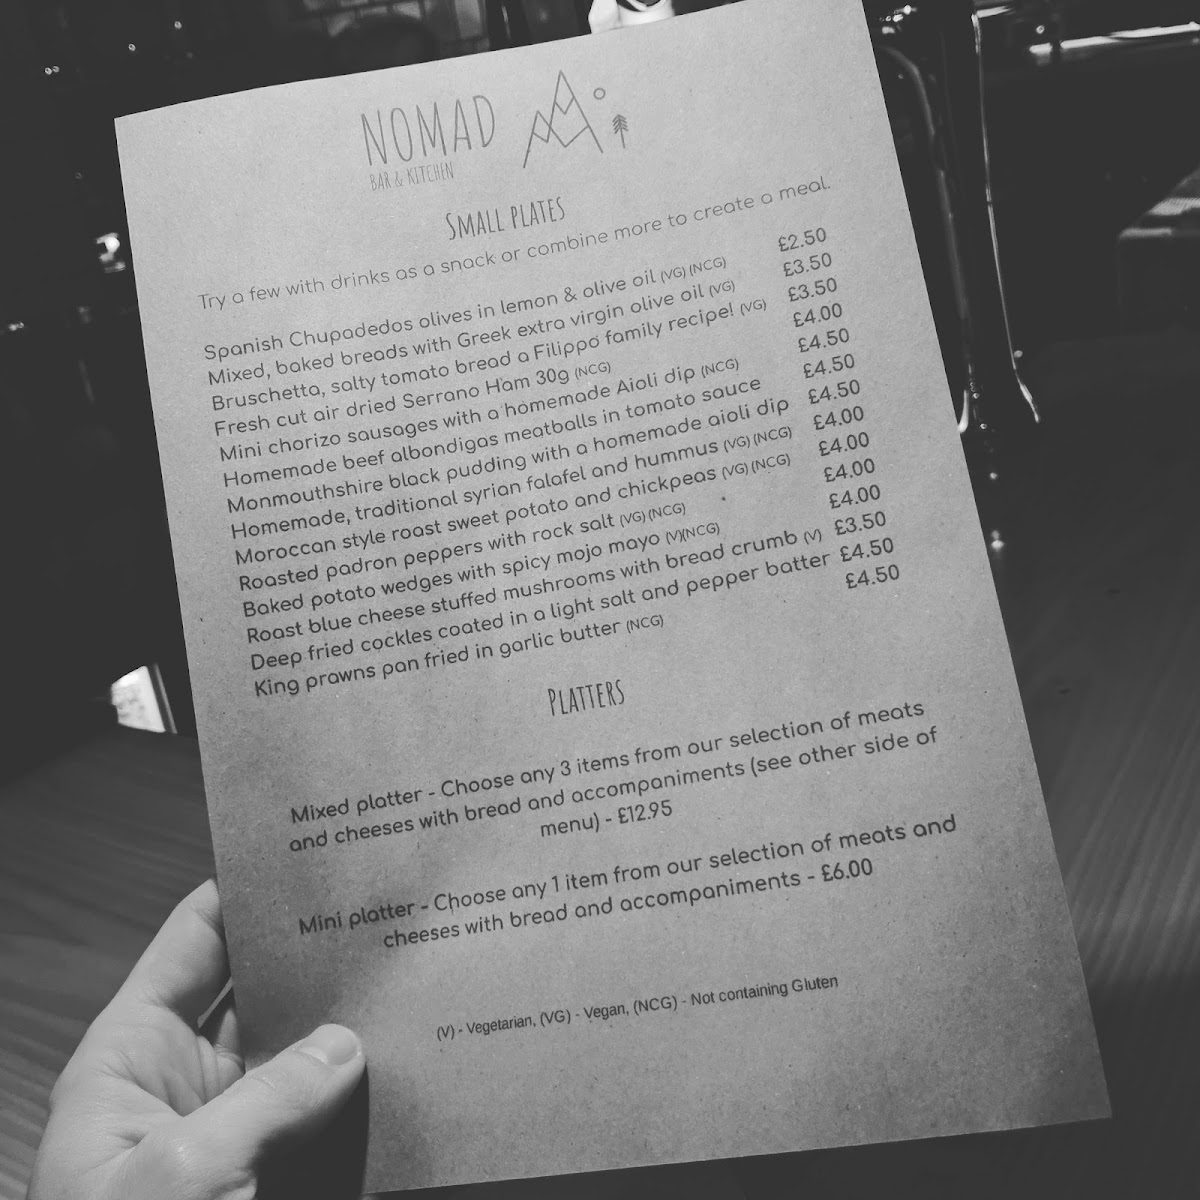 NOMAD
BAR & KITCHEN
SMALL PLATES
Try a few with drinks as a snack or combine more to create a meal.
Spanish Chupadedos olives in lemon & olive oil (VG) (NCG) £2.50
Mixed, baked breads with Greek extra virgin olive oil (VG) £3.50
Bruschetta, salty tomato bread a Filippo family recipe! (VG) £3.50
Fresh cut air dried Serrano Ham 30g (NCG) £4.00
Mini chorizo sausages with a homemade Aioli dip (NCG) £4.50
Homemade beef albondigas meatballs in tomato sauce £4.50
Monmouthshire black pudding with a homemade aioli dip £4.50
Homemade, traditional syrian falafel and hummus (VG) (NCG) £4.00
Moroccan style roast sweet potato and chickpeas (VG) (NCG) £4.00
Roasted padron peppers with rock salt (VG) (NCG) £4.00
Baked potato wedges with spicy mojo mayo (V)(NCG) £4.00
Roast blue cheese stuffed mushrooms with bread crumb (V) £3.50
Deep fried cockles coated in a light salt and pepper batter £4.50
King prawns pan fried in garlic butter (NCG) £4.50
PLATTERS
Mixed platter - Choose any 3 items from our selection of meats
and cheeses with bread and accompaniments (see other side of
menu) - £12.95
Mini platter - Choose any 1 item from our selection of meats and
cheeses with bread and accompaniments - £6.00
(V) - Vegetarian, (VG) - Vegan, (NCG) - Not containing Gluten